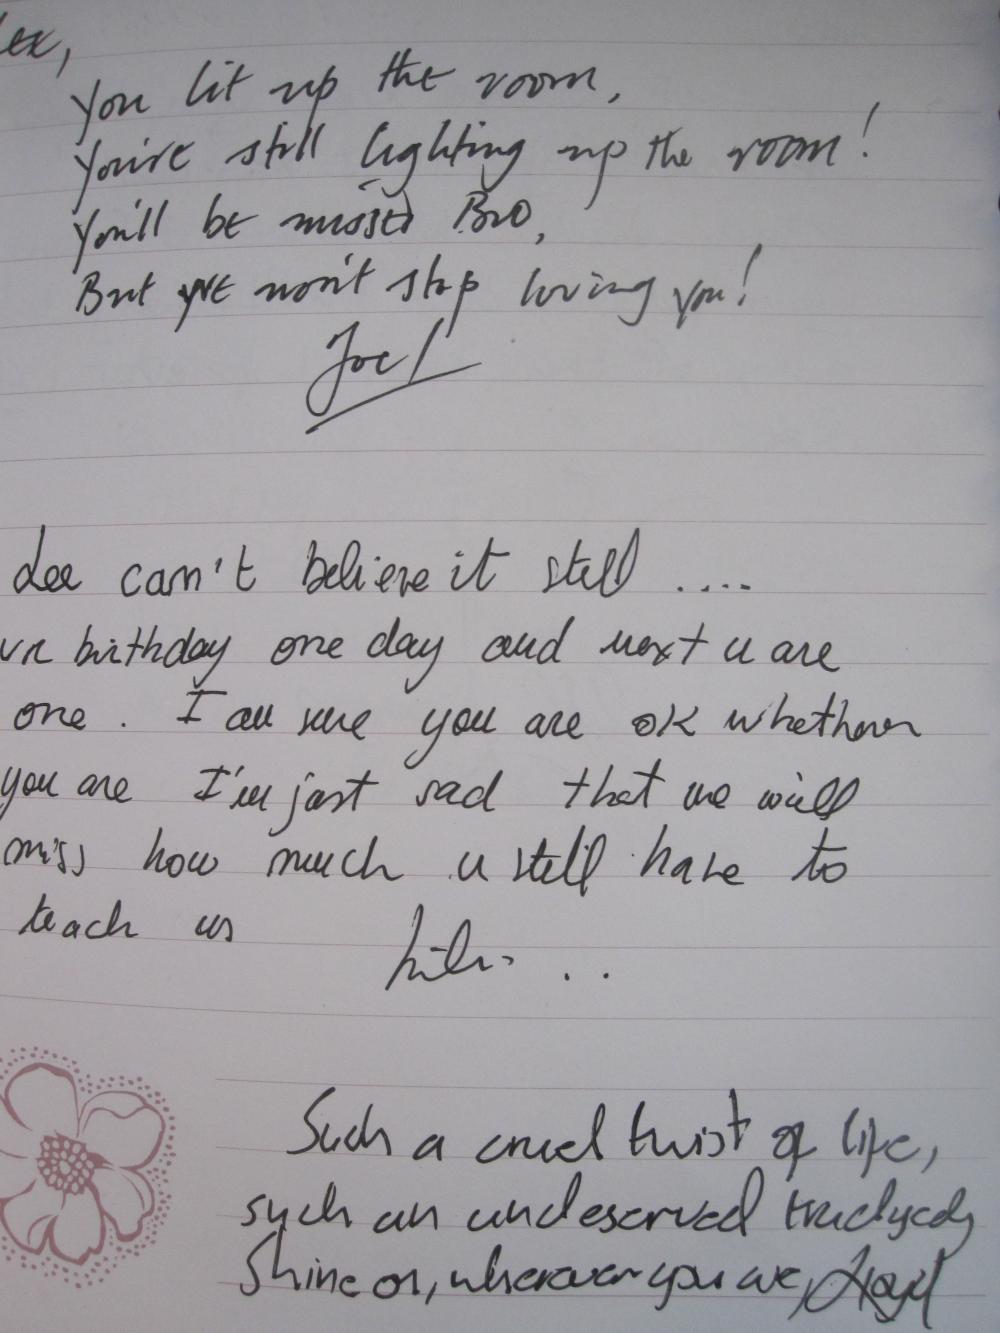 lex,
You lit up the room,
You're still lighting up the room!
You'll be missed Bro,
But we won't stop loving you!
Joel
Lee can't believe it still ....
ur birthday one day and next u are
one. I am sure you are ok whethever
you are I'm just sad that we will
miss how much u still have to
teach us
Such a cruel twist of life,
such an undeserved tradgedy
Shine on, wherever you are, Lloyd